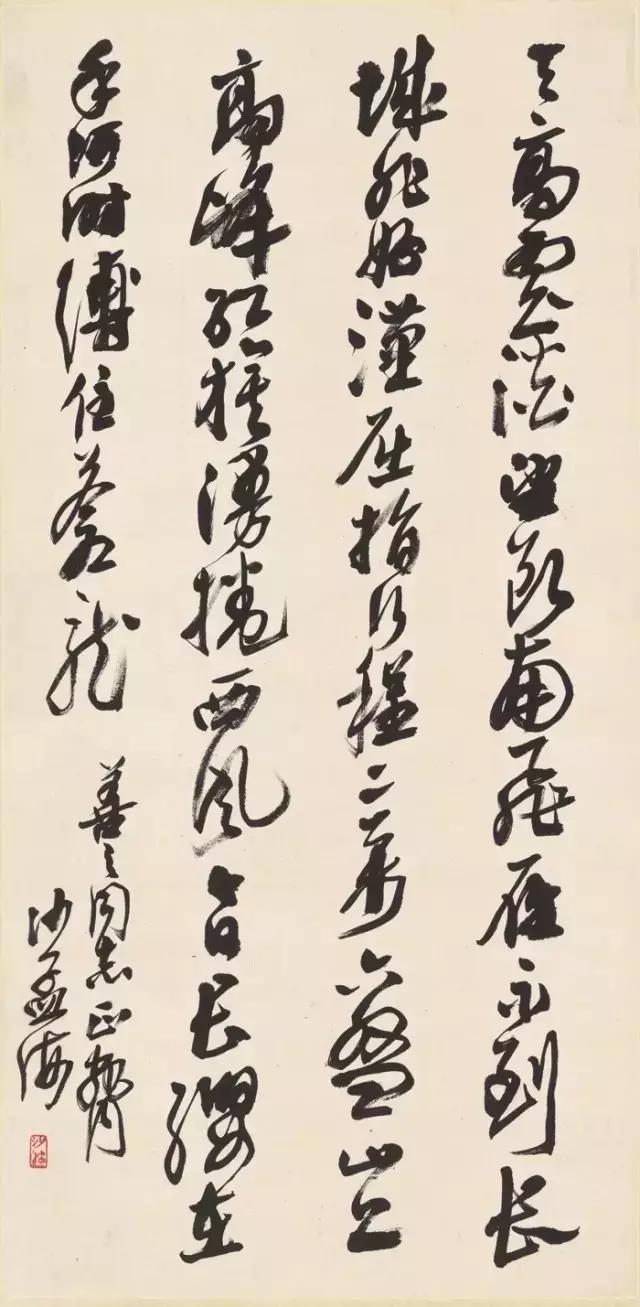 天高雲淡望断南飛雁不到长
城非好漢屈指行程二萬六盤山上
高峰红旗漫捲西风今日长缨在
手何时縛住蒼龙
善之同志正
沙孟海